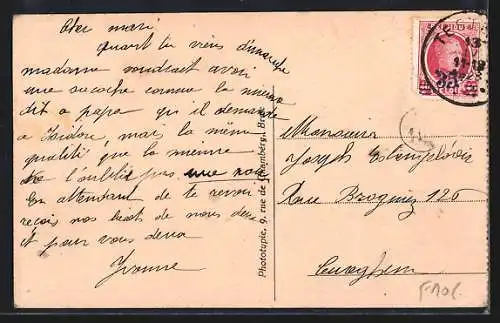 Cher mari
quant tu viens dimanche
madame voudrait avoir
une sacoche comme la mienne
dit a papa qui il demande
a Isidore, mais la même
qualité que la mienne
ne l'oublie pas, une noir
En attendant de te revoir
reçois nos bect de nous deux
Et pour vous deux
Yvonne
Phototypie, 9, rue de Chambéry, Brux
Monsieur
Joseph
Rue Brogniez 126
Cureghem